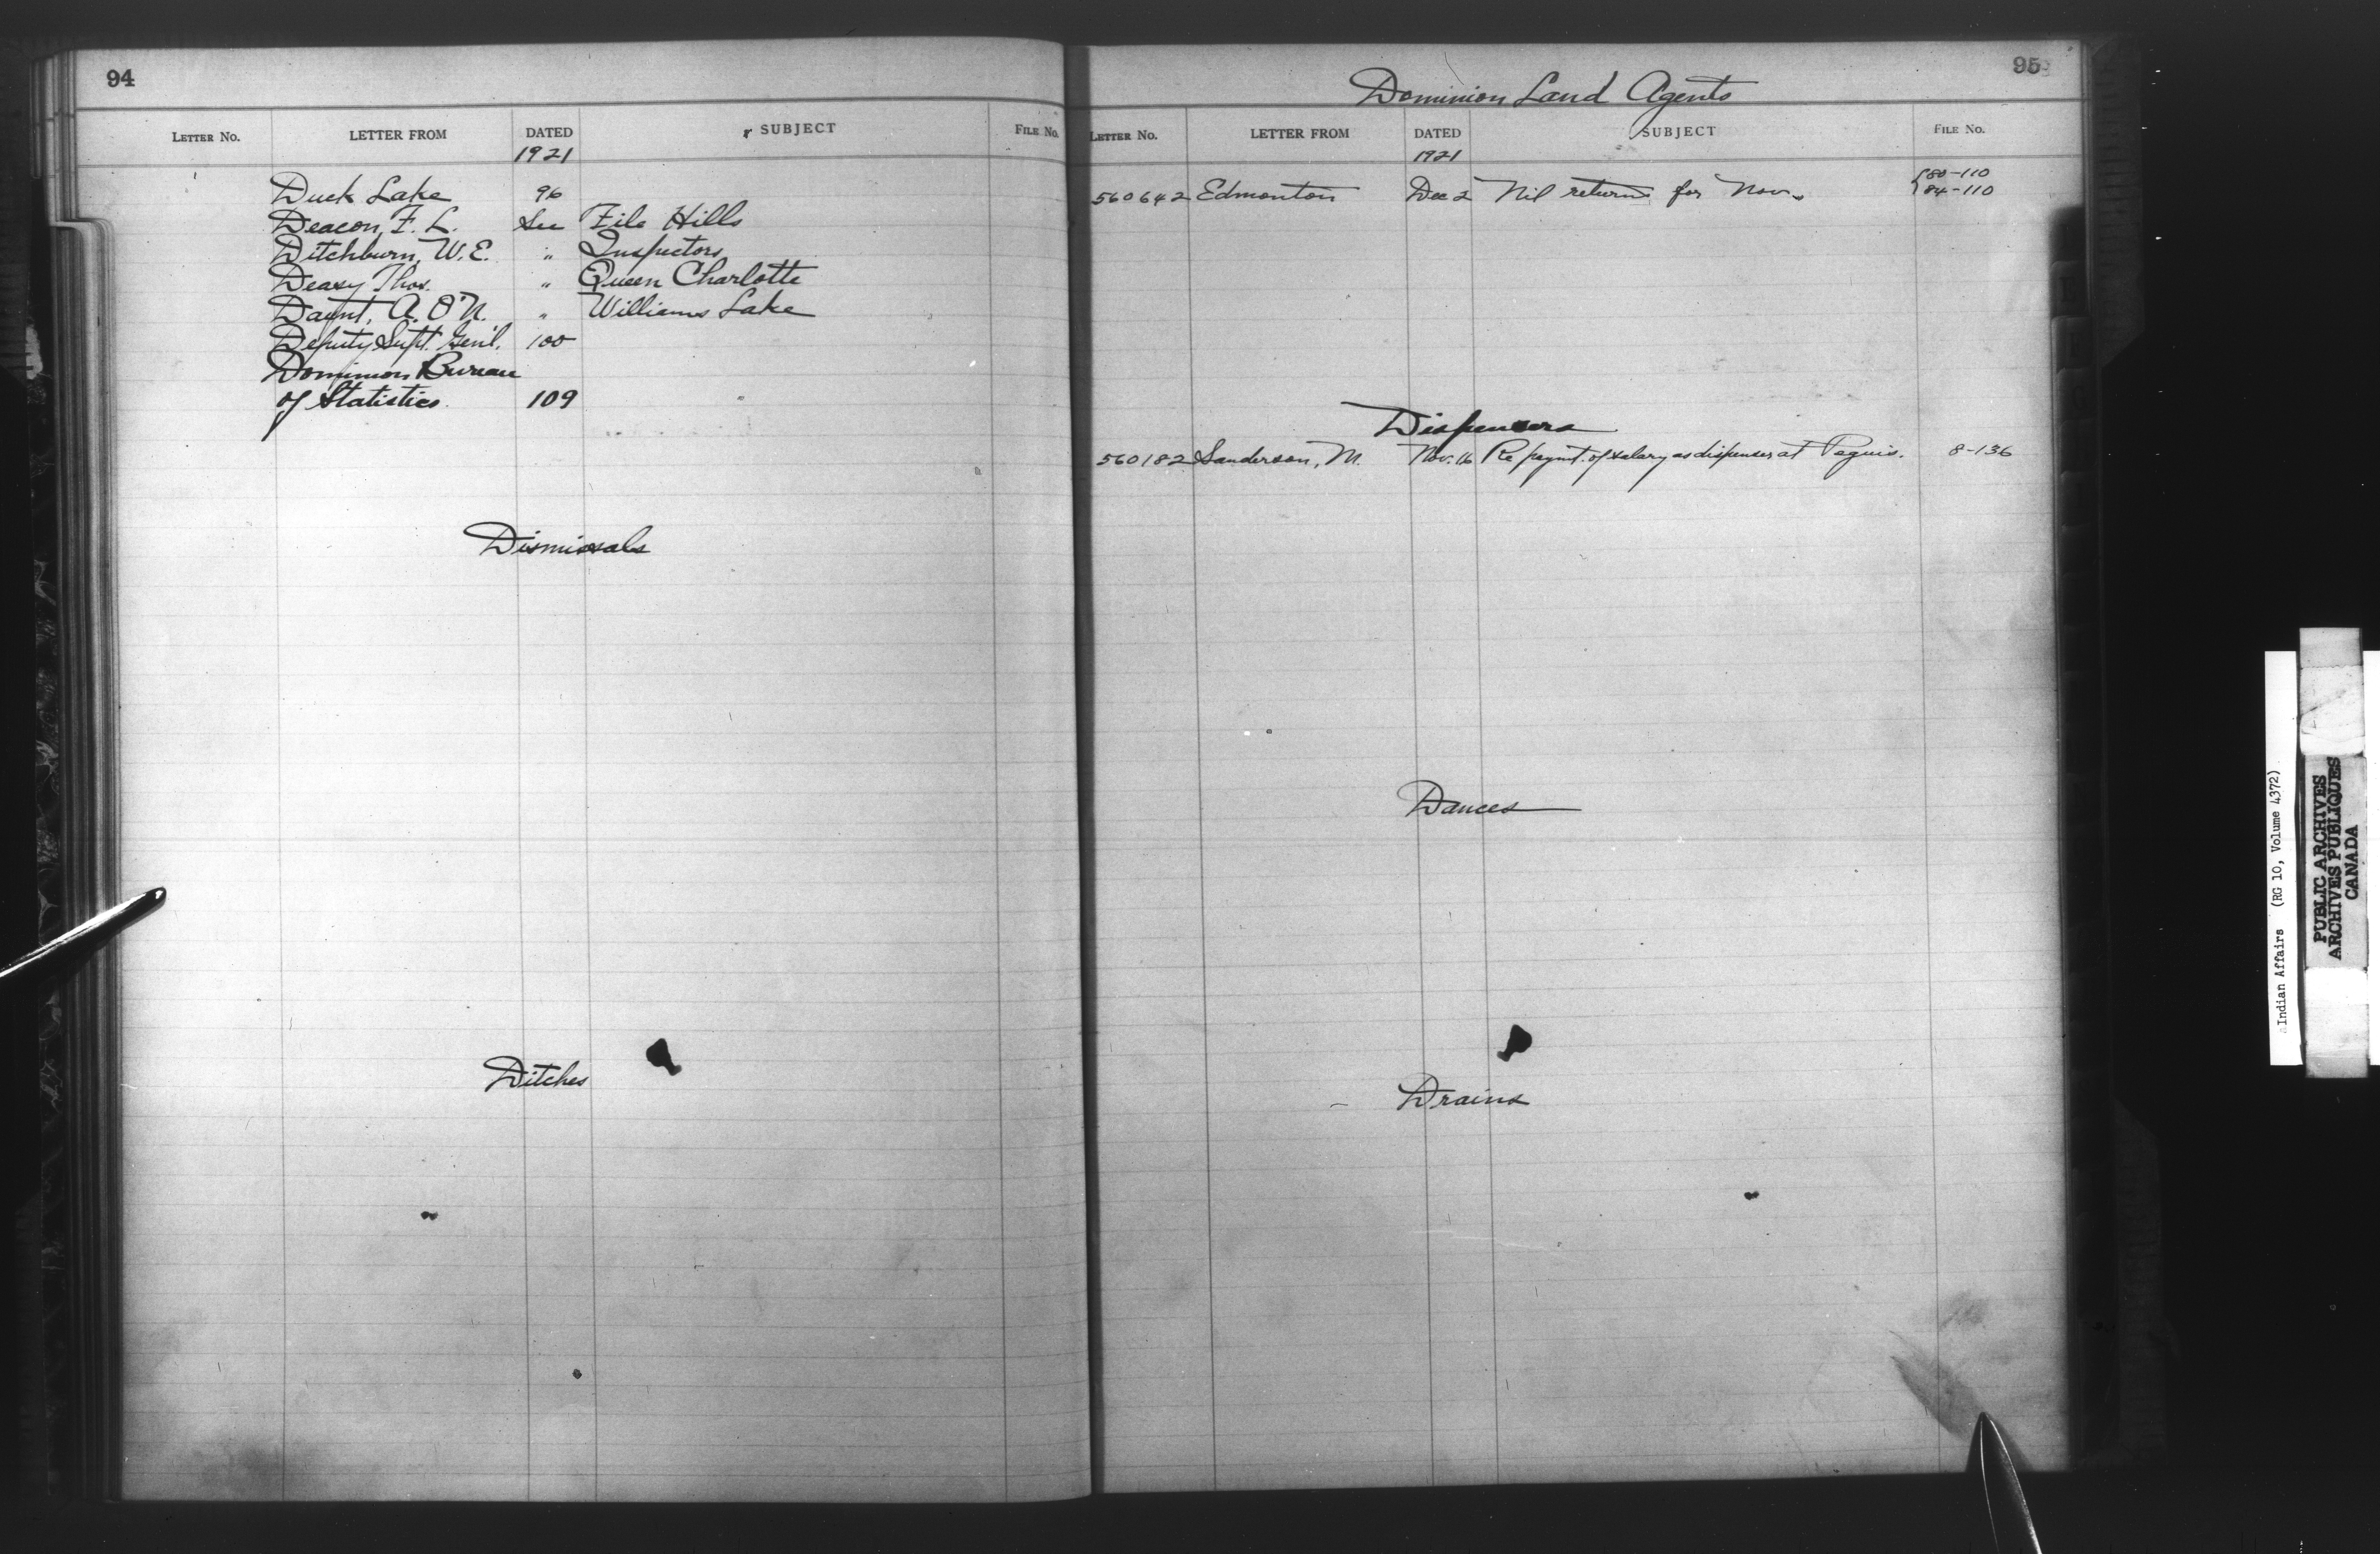 94
LETTER NO. LETTER FROM DATED SUBJECT FILE NO.
1921
Duck Lake 96
Deacon, F. L. See File Hills
Ditchburn, W. E. " Inspectors
Deasy Thos. " Queen Charlotte
Daunt, A. O'N. " Williams Lake
Deputy Supt. Genl. 100
Dominion Bureau
of Statistics 109
Dismissals
Ditches
95
Dominion Land Agents
LETTER NO. LETTER FROM DATED SUBJECT FILE NO.
1921
560642 Edmonton Dec 2 Nil returns for Nov. { 80-110
84-110
Dispensers
560182 Sanderson, M. Nov. 16 Re paymt. of salary as dispenser at Peguis. 8-136
Dances
Drains
Indian Affairs (RG 10, Volume 4372)
PUBLIC ARCHIVES
ARCHIVES PUBLIQUES
CANADA